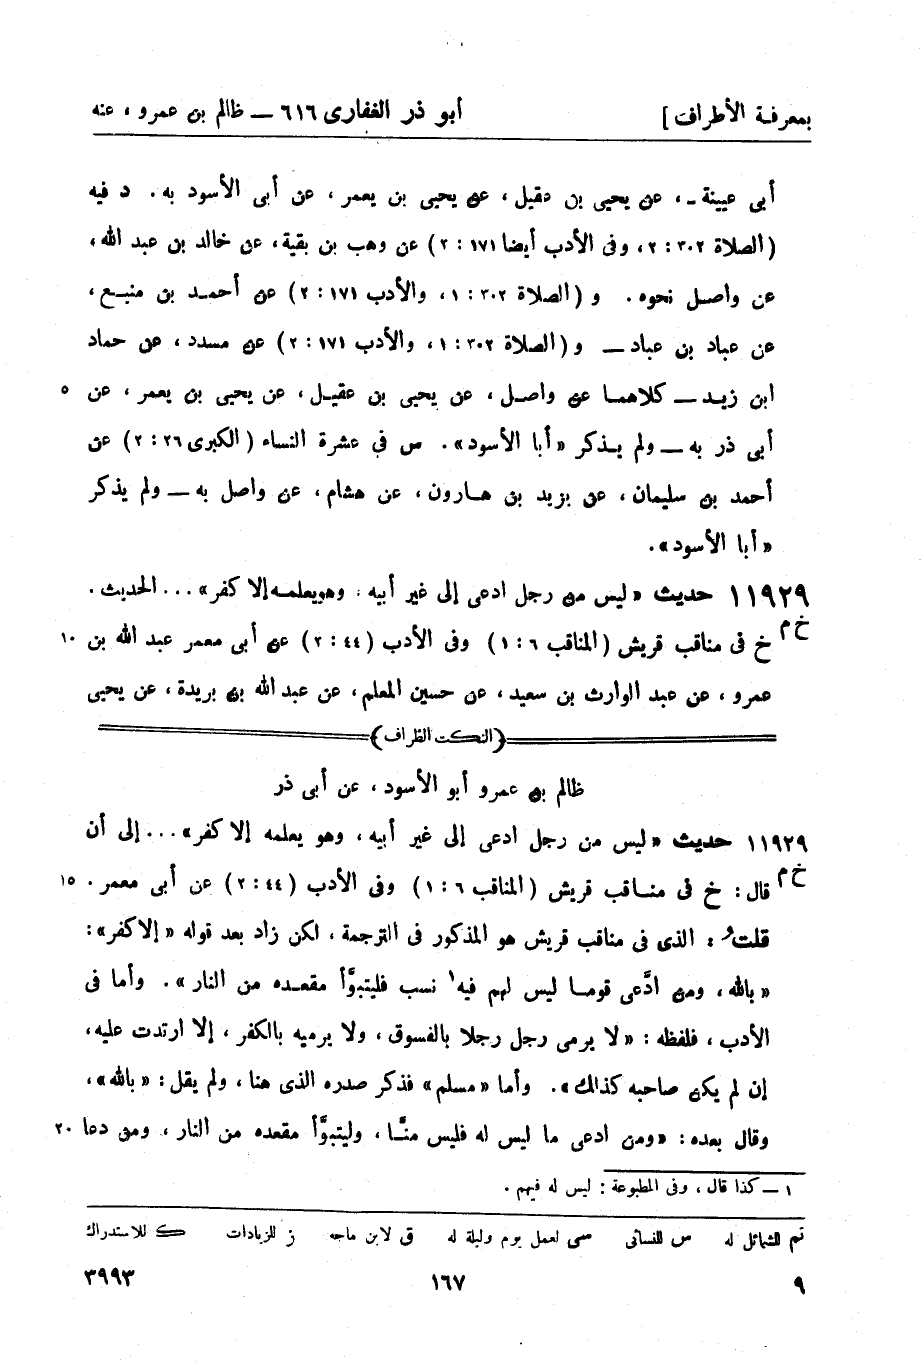 بمعرفة الأطراف ] أبو ذر الغفاري ٦١٦ ــ ظالم بن عمرو ، عنه
أبى عيينة ـ، عن يحيى بن عقيل، عن يحيى بن يعمر، عن أبى الأسود به. د فيه
(الصلاة ٣٠٢ : ٢، وفى الأدب أيضا ١٧١ : ٢) عن وهب بن بقية، عن خالد بن عبد الله،
عن واصل نحوه. و (الصلاة ٣٠٢ : ١، والأدب ١٧١ : ٢) عن أحمد بن منيع،
عن عباد بن عباد ــ و (الصلاة ٣٠٢ : ١، والأدب ١٧١ : ٢) عن مسدد، عن حماد
ابن زيد ــ كلاهما عن واصل، عن يحيى بن عقيل، عن يحيى بن يعمر، عن ٥
أبى ذر به ــ ولم يذكر «أبا الأسود». س في عشرة النساء (الكبرى ٢٦ : ٢) عن
أحمد بن سليمان، عن يزيد بن هارون، عن هشام، عن واصل به ــ ولم يذكر
«أبا الأسود».
١١٩٢٩ حديث «ليس من رجل ادعى إلى غير أبيه، وهو يعلمه إلا كفر» ... الحديث.
خ م
خ فى مناقب قريش (المناقب ٦ : ١) وفى الأدب (٤٤ : ٢) عن أبى معمر عبد الله بن ١٠
عمرو، عن عبد الوارث بن سعيد، عن حسين المعلم، عن عبد الله بن بريدة، عن يحيى
(النكت الظراف)
ظالم بن عمرو أبو الأسود، عن أبى ذر
١١٩٢٩ حديث «ليس من رجل ادعى إلى غير أبيه، وهو يعلمه إلا كفر» ... إلى أن
خ م
قال: خ فى مناقب قريش (المناقب ٦ : ١) وفى الأدب (٤٤ : ٢) عن أبى معمر. ١٥
قلتُ: الذى فى مناقب قريش هو المذكور فى الترجمة، لكن زاد بعد قوله «إلا كفر»:
«بالله، ومن ادَّعى قوما ليس لهم فيه١ نسب فليتبوَّأ مقعده من النار». وأما فى
الأدب، فلفظه: «لا يرمى رجل رجلا بالفسوق، ولا يرميه بالكفر، إلا ارتدت عليه،
إن لم يكن صاحبه كذلك». وأما «مسلم» فذكر صدره الذى هنا، ولم يقل: «بالله»،
وقال بعده: «ومن ادعى ما ليس له فليس منَّا، وليتبوَّأ مقعده من النار، ومن دعا ٢٠
١ ــ كذا قال، وفى المطبوعة: ليس له فيهم.
تم للشمائل له س للنسائى سى لعمل يوم وليلة له ق لابن ماجه ز للزيادات ك للاستدراك
٩ ١٦٧ ٣٩٩٣